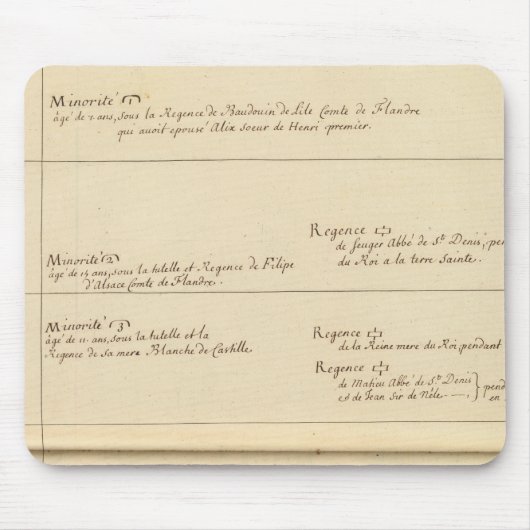 Minorité 1
âgé de 7 ans, sous la Regence de Baudouin de Lile Comte de Flandre
qui avoit epousé Alix soeur de Henri premier.
Regence
de Seuger Abbé de St. Denis,
du Roi a la terre Sainte.
Minorité 2
âgé de 15 ans, sous la tutelle et Regence de Filipe
d'Alsace Comte de Flandre.
Minorité 3
âgé de 11 ans, sous la tutelle et la
Regence de sa mere Blanche de Castille.
Regence
de la Reine mere du Roi pendant
Regence
de Matieu Abbé de St. Denis
et de Jean Sir de Néle
pend
en